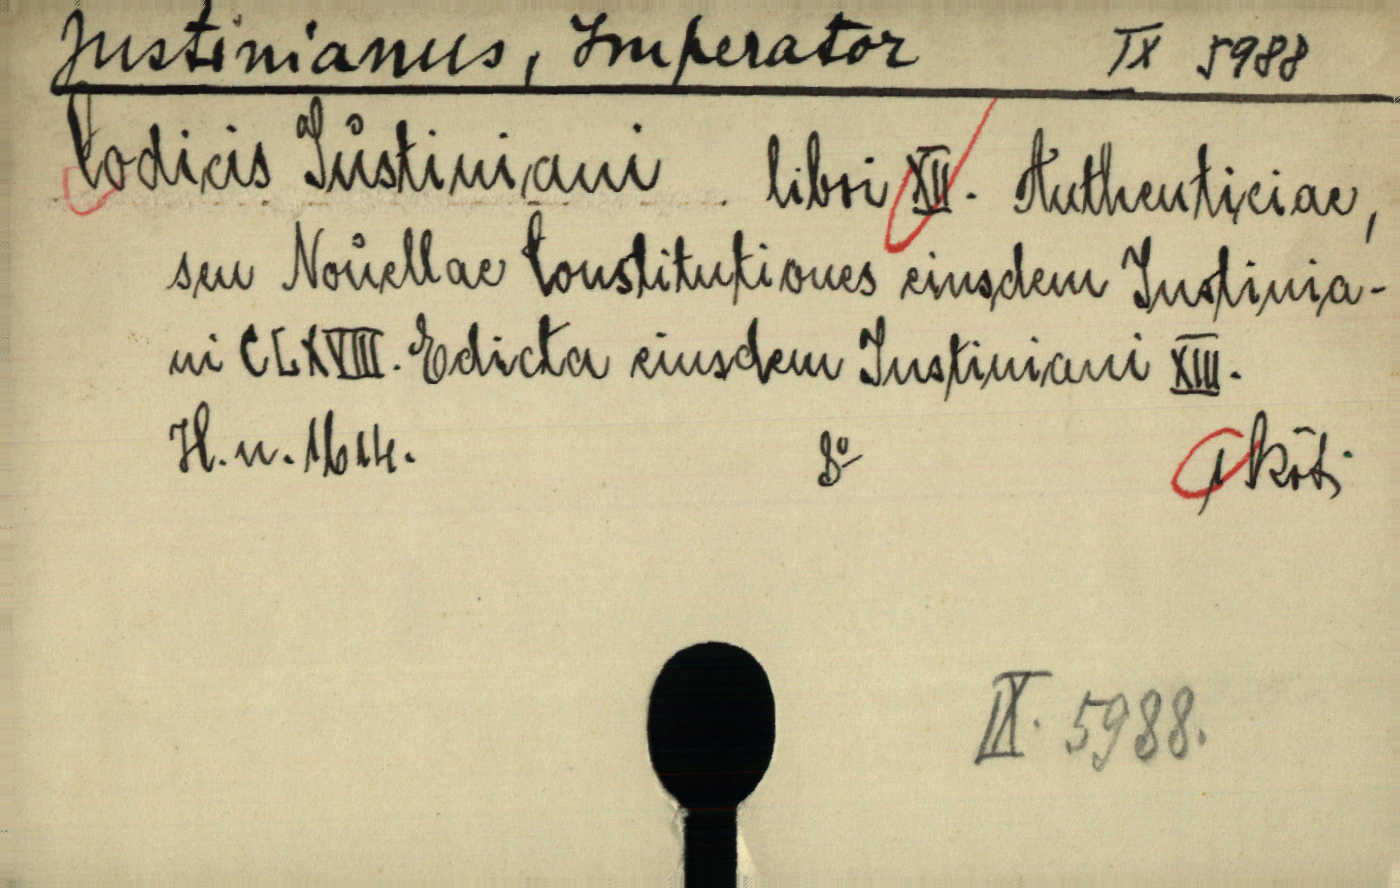 Justinianus, Imperator IX 5988
Codicis Jůstiniani libri XII. Authenticiae,
seu Noůellae Constitutiones eiusdem Justinia-
ni CLXVIII. Edicta eiusdem Justiniani XIII.
H.n. 1614. 8° 1 köt.
IX. 5988.